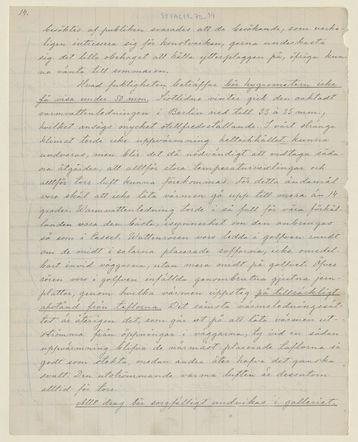 14.
besökts af publiken svarades att de besökande, som verk-
ligen intressera sig för konstverken, gerna underkasta
sig det lilla obehaget att hålla ytterplaggen på, öfriga kun-
na vänta till sommaren.
Hvad fuktigheten beträffar bör hygrometern icke
få visa under 50 mm. Sistlidne vinter gick den oaktadt
varmvattenledningen i Berlin ned till 33 à 35 mm.,
hvilket ansågs mycket otillfredsställande. I vårt stränga
klimat torde icke uppvärmning helt och hållet kunna
undvaras, men blir det då nödvändigt att vidtaga såda-
na åtgärder, att alltför stora temperaturvexlingar och
alltför torr luft kunna förekommas. För detta ändamål
vore skäl att icke låta värmen gå upp till mera än 14
grader. Varmvattenledning torde i så fall för våra förhål-
landen vara den bästa, synnerhet om den anbringas
så som i Cassel. Vattenrören vore ledda i golfven rundt
om de midt i salarna placerade sofforna, icke omedel-
bart invid väggarna, utan mera midt på golfvet. Öfver
rören vore i golfven infällda genombrutna gjutna jern-
plattor, genom hvilka värmen uppsteg på tillräckligt
afstånd från taflorna. Det sämsta värmeledningssät-
tet är återigen det, som går ut på att låta värmen ut-
strömma från öppningar i väggarna, ty vid en sådan
uppvärmning blifva de närmast placerade taflorna så
godt som stekta, medan andra åter hafva det ganska
svalt. Den utströmmande varma luften är dessutom
alltid för torr.
Allt drag bör sorgfälligt undvikas i galleriet.